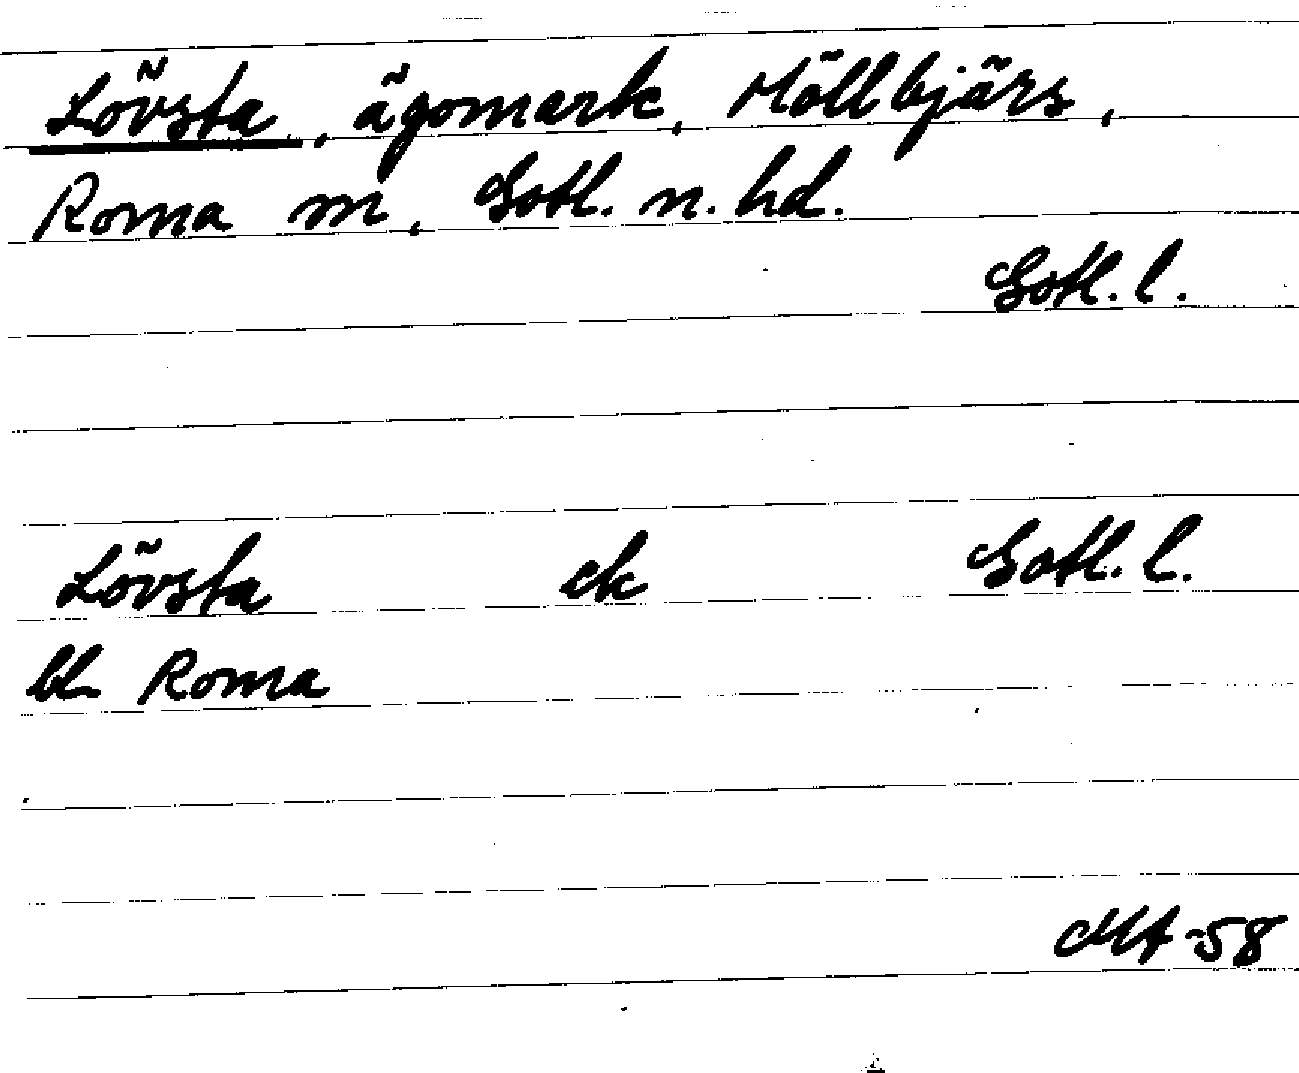 Lövsta, ägomark, Möllbjärs,
Roma sn, Gotl. n. hd.
Gotl. l.
Lövsta ek Gotl. l.
bl Roma
MA -58